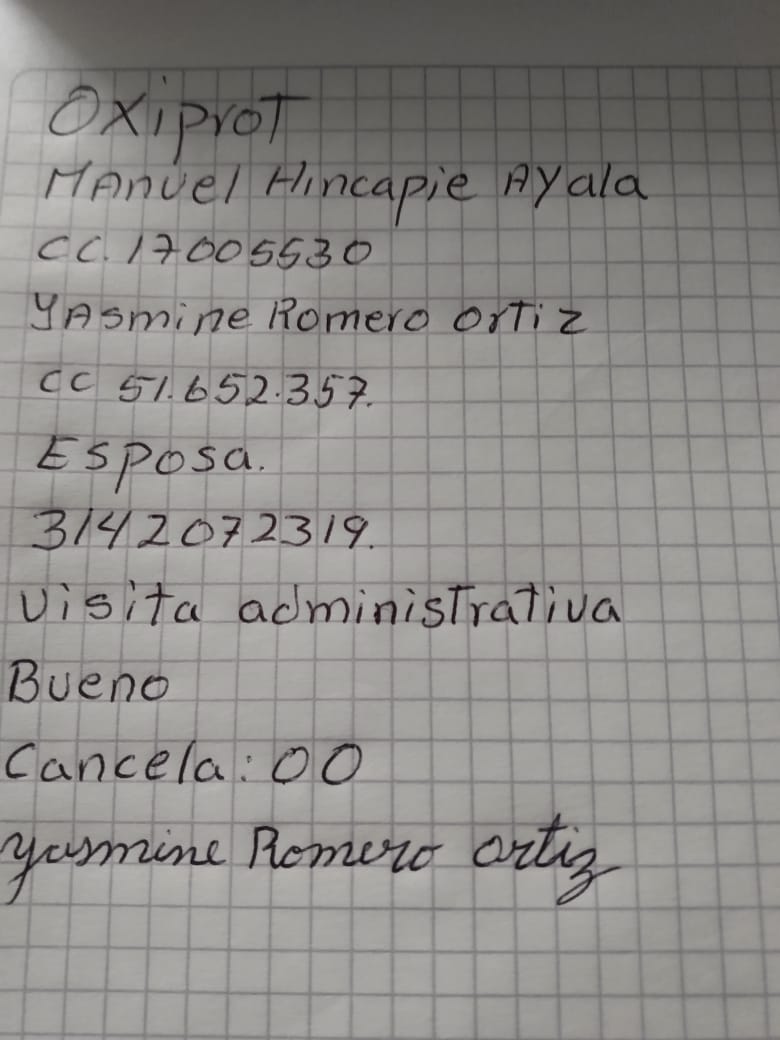 OxiproT
MAnuel Hincapie Ayala
CC. 17005530
YAsmine Romero orTiz
CC 51.652.357.
Esposa.
3142072319.
Visita adminisTraTiva
Bueno
Cancela: 00
yasmine Romero ortiz